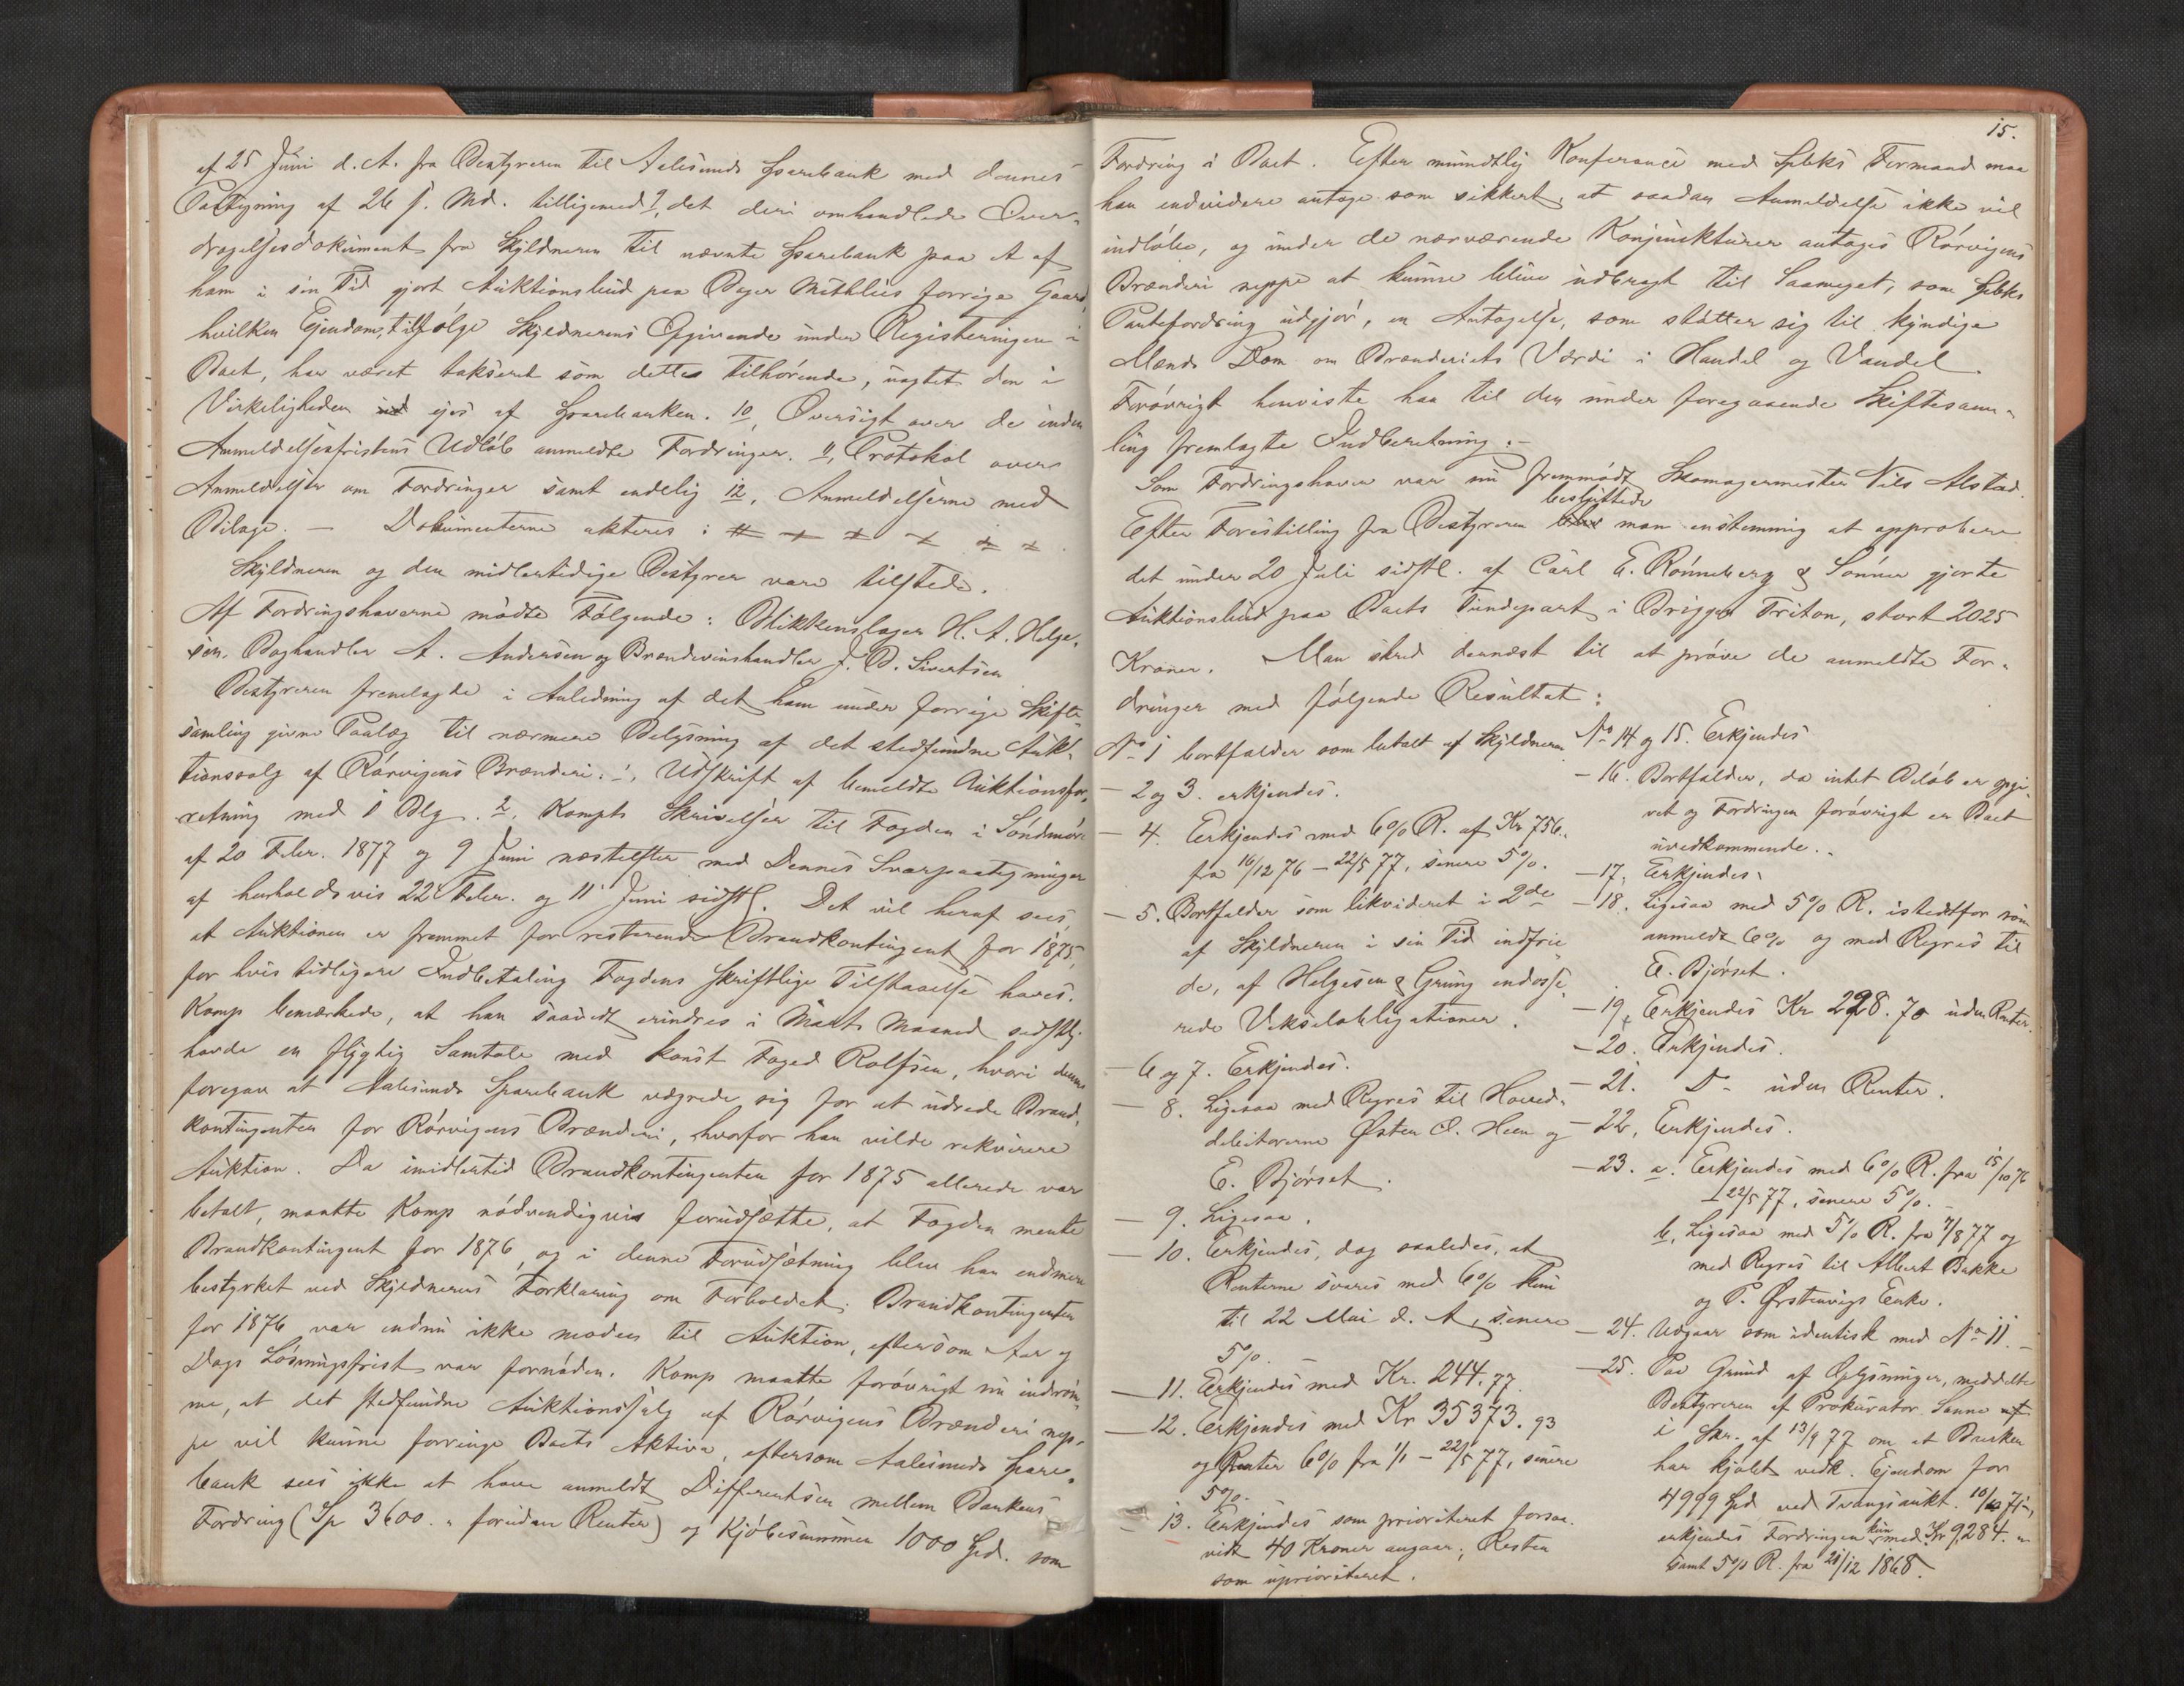 af 25 Juni d. A. fra Bestyreren til Aalesunds Sparebank med dennes
Paategning af 26 s. Md. tilligemed 9, det deri omhandlede Over-
dragelsesdokument fra Skyldneren til nævnte Sparebank paa et af
ham i sin Tid gjort Auktionsbud paa Bager Møthles forrige Gaard,
hvilken Ejendom, tilfølge Skyldnerens Opgivende under Registeringen i
Boet, har været takseret som dette tilhørende, uagtet den i
Virkeligheden ejes af Sparebanken. 10, Oversigt over de inden
Anmeldelsesfristens Udløb anmeldte Fordringer. 11, Protokol over
Anmeldelser om Fordringer samt endelig 12, Anmeldelserne med
Bilage. — Dokumenterne akteres:
Skyldneren og den midlertidige Bestyrer vare tilstede.
Af Fordringshaverne mødte Følgende: Blikkenslager H. A. Helge-
sen, Boghandler A. Andersen og Brændevinshandler J. B. Sivertsen
Bestyreren fremlagde i Anledning af det ham under forrige Skifte-
samling givne Paalæg til nærmere Belysning af det stedfundne Auk-
tionssalg af Rørvigens Brænderi: 1, Udskrift af bemeldte Auktionsfor-
retning med 1 Blg. 2, Komps Skrivelser til Fogden i Søndmør
af 20 Febr. 1877 og 9 Juni næstefter med Dennes Svarpaategninger
af henholdsvis 22 Febr. og 11 Juni sidstl. Det vil heraf sees,
at Auktionen er fremmet for resterende Brandkontingent for 1875,
for hvis tidligere Indbetaling Fogdens skriftlige Tilstaaelse haves.
Komp bemærkede, at han saavidt erindres i Marts Maaned sidstl.
havde en flygtig Samtale med konst Foged Rolfsen, hvori denne
foregav at Aalesunds Sparebank vægrede sig for at udrede Brand-
kontingenten for Rørvigens Brænderi, hvorfor han vilde rekvirere
Auktion. Da imidlertid Brandkontingenten for 1875 allerede var
betalt, maatte Komp nødvendigvis forudsætte, at Fogden mente
Brandkontingent for 1876, og i denne Forudsætning blev han endmere
bestyrket ved Skyldnerens Forklaring om Forholdet. Brandkontingenten
for 1876 var endnu ikke moden til Auktion, eftersom Aar og
Dags Løsningsfrist var fornøden. Komp maatte forøvrigt nu indrøm-
me, at det stedfundne Auktionssalg af Rørvigens Brænderi nep-
pe vil kunne forringe Boets Aktiva, eftersom Aalesunds Spare-
bank sees ikke at have anmeldt Differentsen mellem Bankens
Fordring (Sp 3600. " foruden Renter) og Kjøbesummen 1000 Spd. som
15.
Fordring i Boet. Efter mundtlig Konference med Spbks Formand maa
han endvidere antage som sikkert, at saadan Anmeldelse ikke vil
indløbe, og under de nærværende Konjunkturer antages Rørvigens
Brænderi neppe at kunne blive udbragt til Saameget, som Spbks
Pantefordring udgjør, en Antagelse, som støtter sig til kyndige
Mænds Dom om Brænderiets Værdi i Handel og Vandel.
Forøvrigt henviste han til den under foregaaende Skiftesam-
ling fremlagte Indberetning. —
Som Fordringshaver var nu fremmødt Skomagermester Nils Alstad.
besluttede
Efter Forestilling fra Bestyreren man enstemmig at approbere
det under 20 Juli sidstl. af Carl E. Rønneberg & Sønner gjorte
Auktionsbud paa Boets Tiendepart i Briggen Triton, stort 2025
Kroner. Man skred dernæst til at prøve de anmeldte For-
dringer med følgende Resultat:
No 1 bortfalder som betalt af Skyldneren
— 2 og 3. erkjendes.
— 4. Erkjendes med 6% R. af Kr 756.
fra 16/12 76 – 22/5 77, senere 5%.
— 5. Bortfalder som likvideret i 2de
af Skyldneren i sin Tid indfrie-
de, af Helgesen & Grung endosse-
rede Vekselobligationer.
— 6 og 7. Erkjendes.
— 8. Ligesaa med Regres til Hoved-
debitorerne Østen O. Heen og
E. Bjørset.
— 9. Ligesaa.
— 10. Erkjendes, dog saaledes, at
Renterne svares med 6% kun
til 22 Mai d. A, senere
5%.
— 11. Erkjendes med Kr. 244.77.
— 12. Erkjendes med Kr 35373.93
og Renter 6% fra 1/1 – 22/5 77, senere
5%.
— 13. Erkjendes som prioriteret forsaa-
vidt 40 Kroner angaar; Resten
som uprioriteret.
No 14 og 15. Erkjendes
— 16. Bortfalder, da intet Beløb er opgi-
vet og Fordringen forøvrigt er Boet
uvedkommende.
— 17. Erkjendes.
— 18. Ligesaa med 5% R. istedetfor som
anmeldt 6% og med Regres til
E. Bjørset.
— 19. Erkjendes Kr 298.70 uden Renter.
— 20. Erkjendes.
— 21. Do uden Renter.
— 22. Erkjendes.
— 23. a. Erkjendes med 6% R. fra 15/10 76
– 22/5 77, senere 5%. —
b, Ligesaa med 5% R. fra 7/8 77 og
med Regres til Albert Bakke
og P. Ørstenvigs Enke.
— 24. Udgaar som identisk med No 11. —
— 25. Paa Grund af Oplysninger, meddelte
Bestyreren af Prokurator Sanne
i Skr. af 13/9 77 om at Banken
har kjøbt vedk. Ejendom for
4999 Spd ved Tvangsaukt. 71,
erkjendes Fordringen kun med Kr 9,284. "
samt 5% R. fra 21/12 1868.